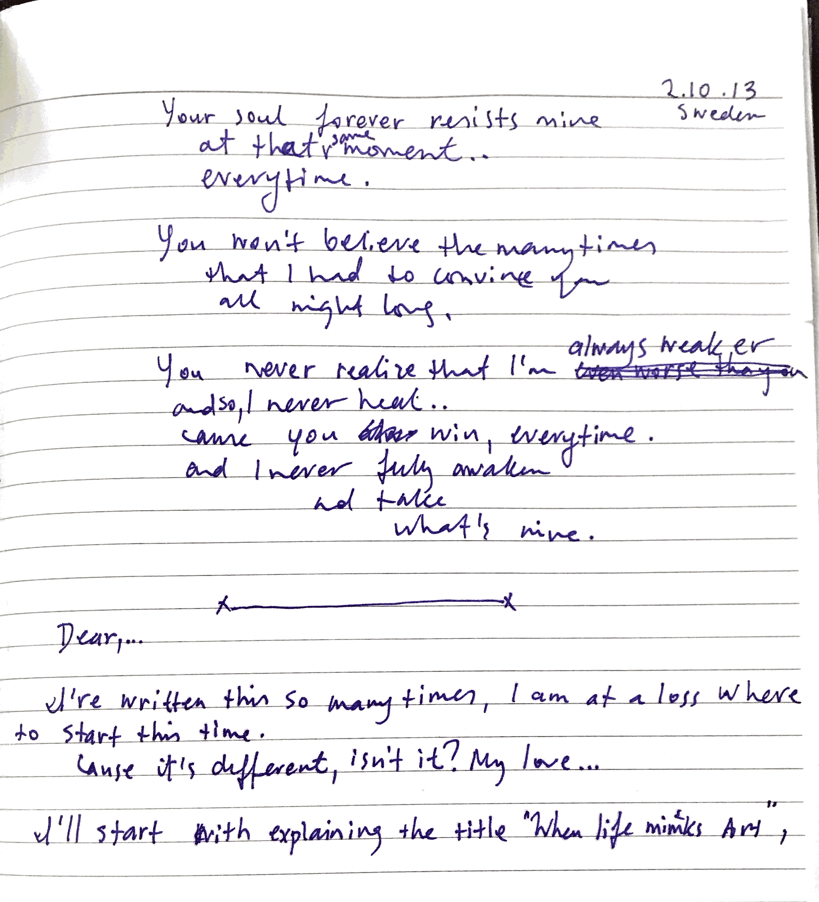 2.10.13
Sweden
Your soul forever resists mine
at that same moment..
everytime.
You won't believe the many times
that I had to convince you
all night long.
You never realize that I'm always weaker
and so, I never heal..
cause you win, everytime.
and I never fully awaken
and take
what's mine.
Dear,...
I've written this so many times, I am at a loss where
to start this time.
Cause it's different, isn't it? My love...
I'll start with explaining the title "When life mimiks Art",